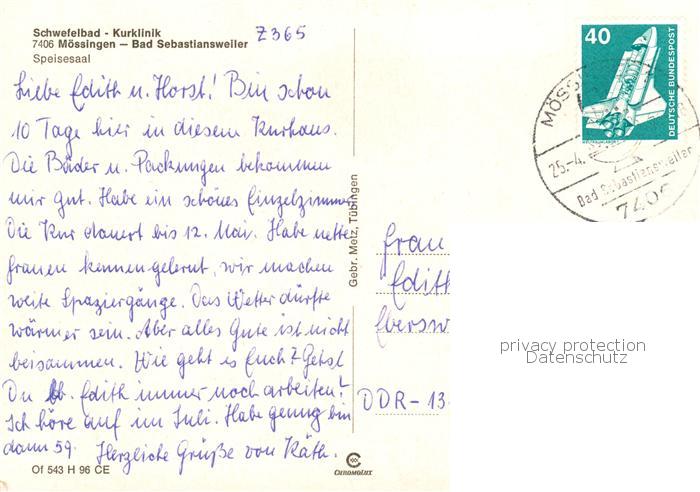 Schwefelbad - Kurklinik
7406 Mössingen – Bad Sebastiansweiler
Speisesaal
Z365
Liebe Edith u. Horst! Bin schon
10 Tage hier in diesem Kurhaus.
Die Bäder u. Packungen bekommen
mir gut. Habe ein schönes Einzelzimmer
Die Kur dauert bis 12. Mai. Habe nette
Frauen kennengelernt, wir machen
weite Spaziergänge. Das Wetter dürfte
wärmer sein. Aber alles Gute ist nicht
beisammen. Wie geht es Euch? Gehst
Du lb. Edith immer noch arbeiten?
Ich höre auf im Juli. Habe genug bin
dann 59. Herzliche Grüße von Käth.
Of 543 H 96 CE
CHROMOLUX
Gebr. Metz, Tübingen
40
DEUTSCHE BUNDESPOST
MÖSSI
25.-4.
Bad Sebastiansweiler
7406
Frau
Edith
Ebersw
DDR - 13
privacy protection
Datenschutz